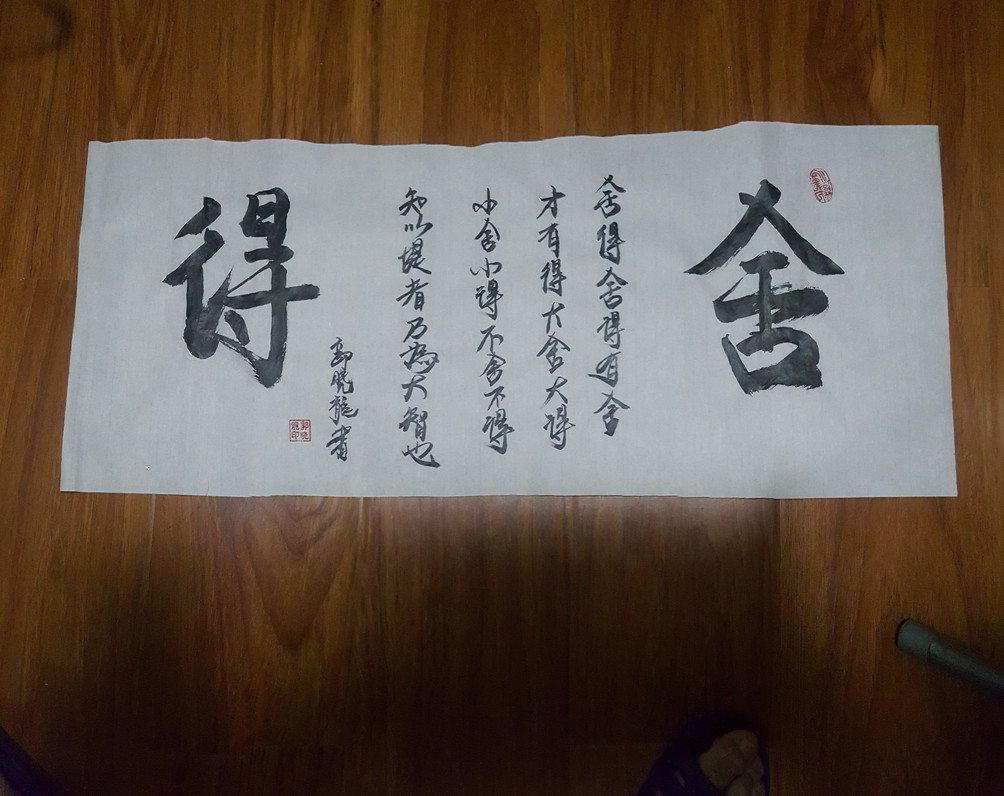 舍
舍得舍得有舍
才有得大舍大得
小舍小得不舍不得
知以堤者乃为大智也
得
郭晓龙书